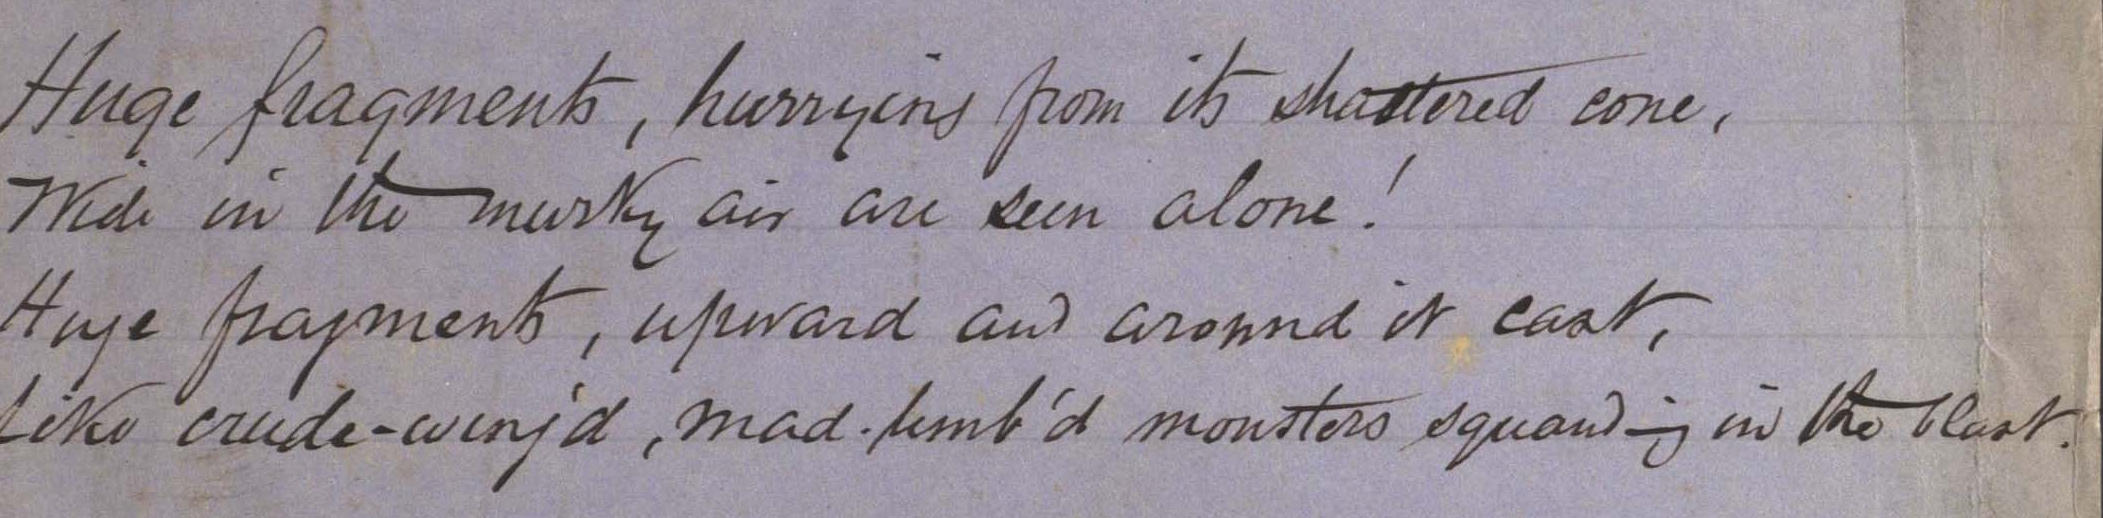 Huge fragments, hurrying from its shattered cone,
Wide in the murky air are seen alone!
Huge fragments, upward and around it cast,
Like crude-wing'd, mad-limb'd monsters squanding in the blast.